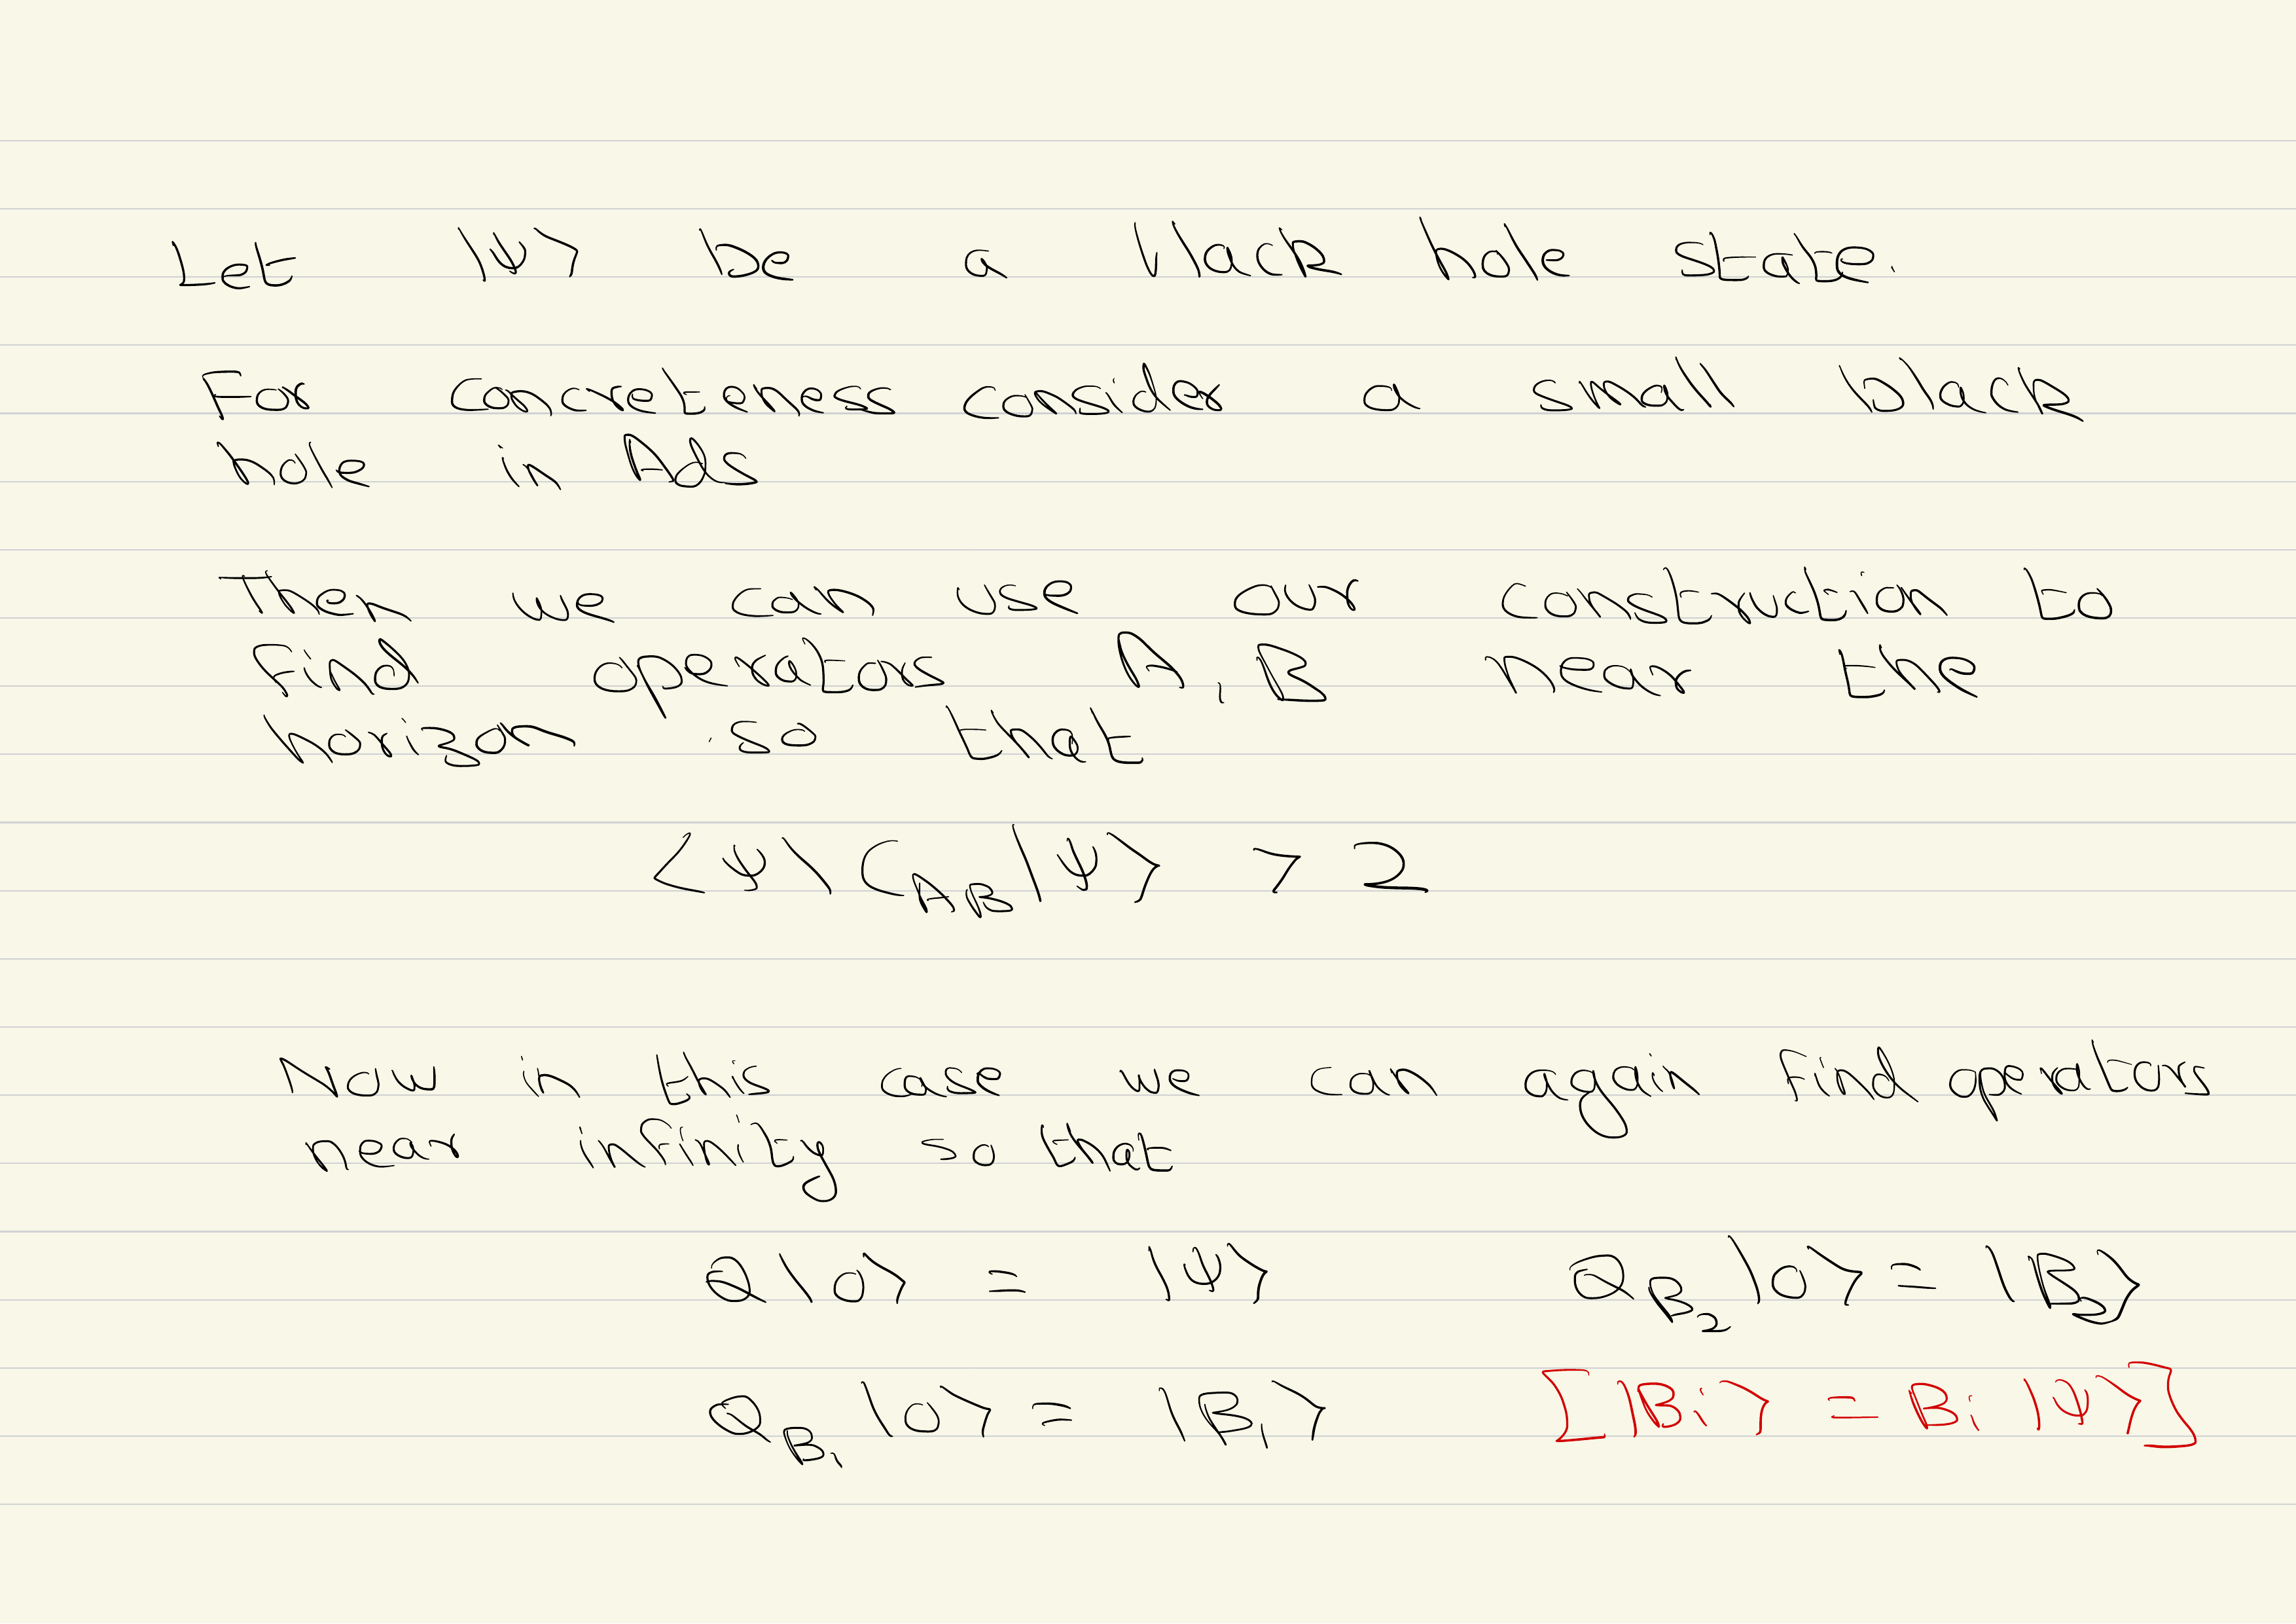 Let |ψ⟩ be a black hole state.
For concreteness consider a small black
hole in AdS
Then we can use our construction to
find operators A, B near the
horizon so that
⟨ψ| C_{AB} |ψ⟩ > 2
Now in this case we can again find operators
near infinity so that
Q|0⟩ = |ψ⟩ Q_{B_2}|0⟩ = |B_2⟩
Q_{B_1}|0⟩ = |B_1⟩ [|B_i⟩ = B_i |ψ⟩]